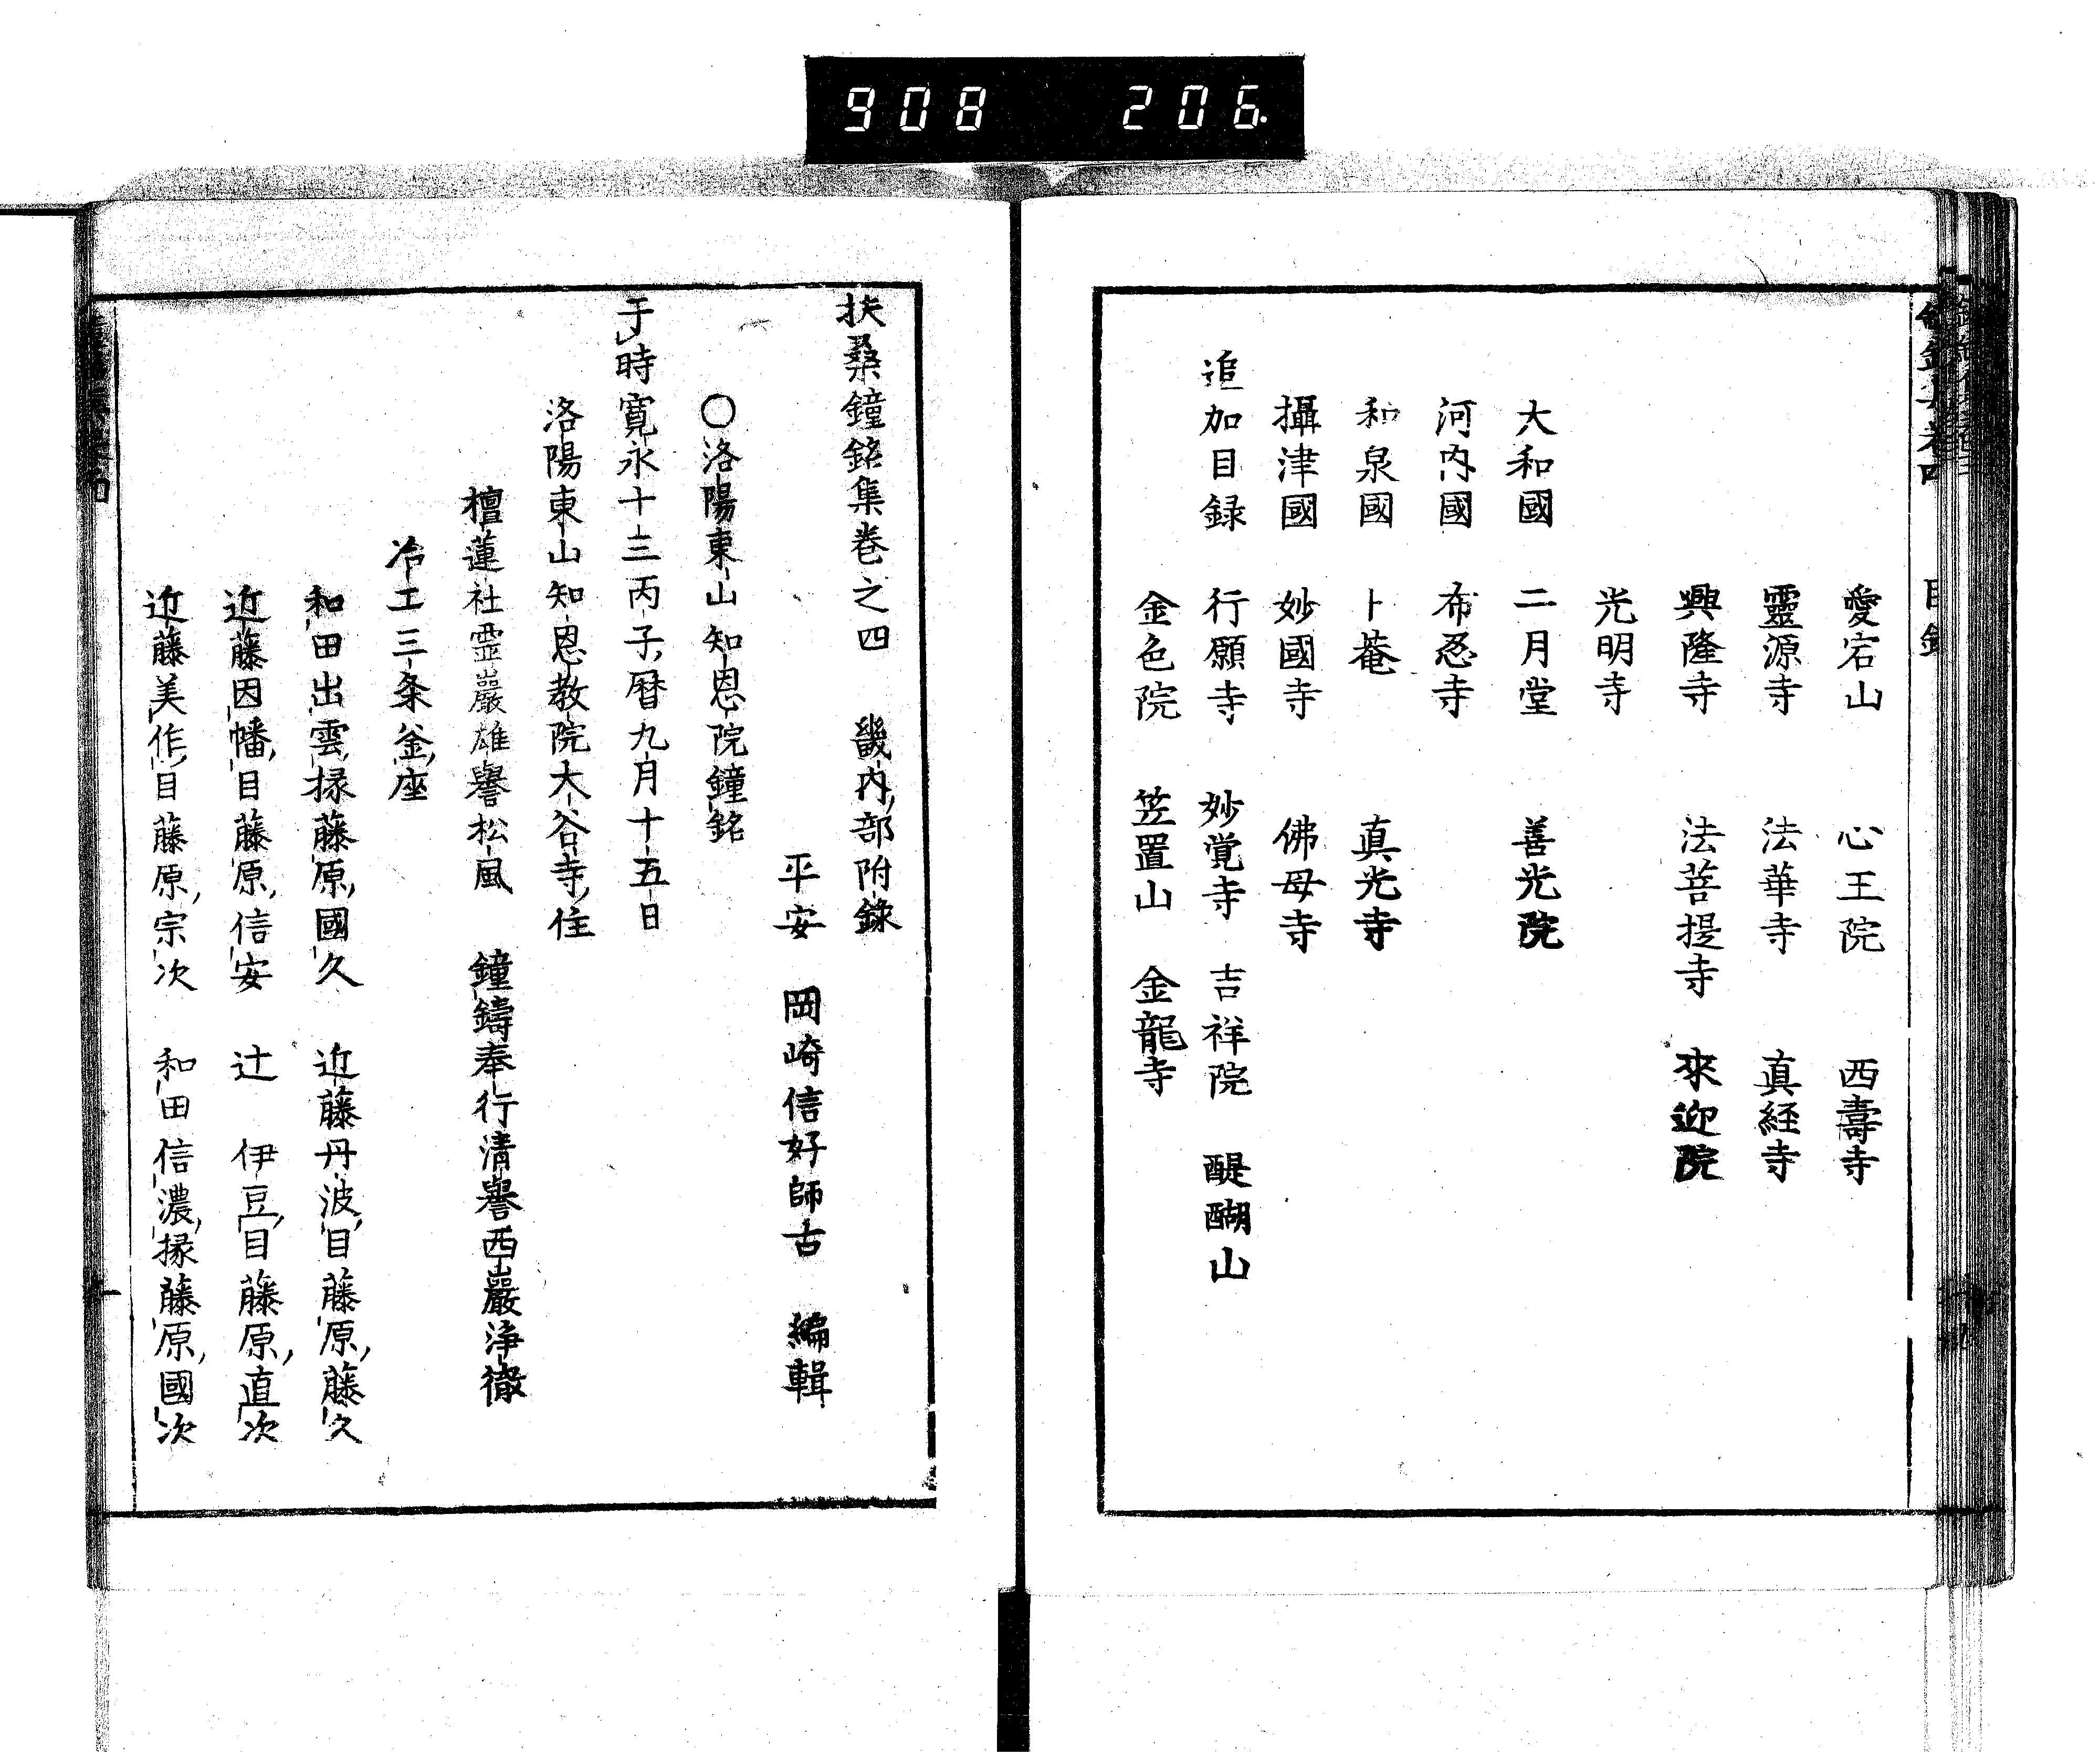 908 206.
愛宕山 心王院 西壽寺
靈源寺 法華寺 真経寺
興隆寺 法菩提寺 來迎院
光明寺
大和國 二月堂 善光院
河内國 布忍寺
和泉國 卜菴 真光寺
攝津國 妙國寺 佛母寺
追加目録 行願寺 妙覚寺 吉祥院 醍醐山
金色院 笠置山 金龍寺
扶桑鐘銘集巻之四 畿内部附錄
平安 岡崎信好師古 編輯
○洛陽東山知恩院鐘銘
于時寛永十三丙子暦九月十五日
洛陽東山知恩教院大谷寺住
檀蓮社霊巖雄譽松風 鐘鑄奉行清譽西巖浄徹
冶工三条釜座
和田出雲掾藤原國久 近藤丹波目藤原藤久
近藤因幡目藤原信安 辻 伊豆目藤原直次
近藤美作目藤原宗次 和田信濃掾藤原國次